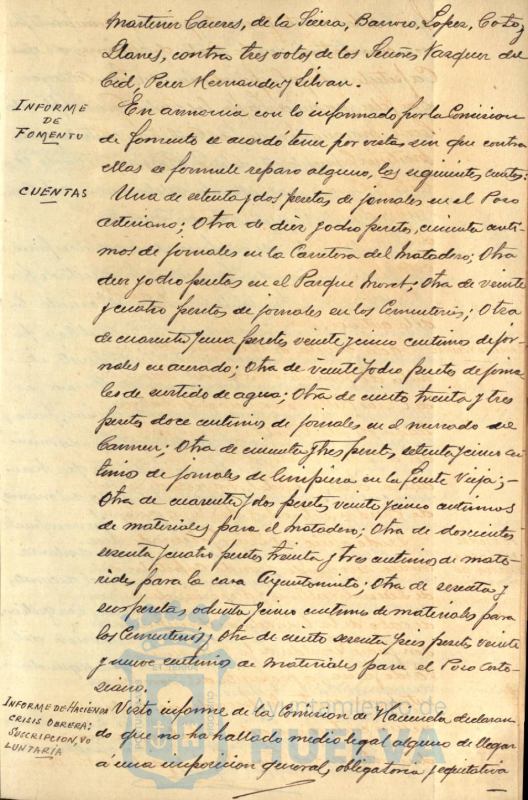 Martinez Caceres, de la Sierra, Barrero, Lopez, Coto y
Llanes, contra tres votos de los Señores Vazquez del
Cid, Perez Hernandez y Silvan.
INFORME
DE
FOMENTO
En armonia con lo informado por la Comision
de fomento se acordó tener por vistas sin que contra
ellas se formule reparo alguno, las siguientes cuentas:
CUENTAS
Una de setenta y dos pesetas de jornales en el Pozo
artesiano; Otra de diez y ocho pesetas, cincuenta centi-
mos de jornales en la Carretera del Matadero; Otra
diez y ocho pesetas en el Parque Moret; Otra de veinte
y cuatro pesetas de jornales en los Cementerios; Otra
de cuarenta y una pesetas veinte y cinco centimos de jor-
nales en acerado; Otra de veinte y ocho pesetas de jorna-
les de surtido de agua; Otra de ciento treinta y tres
pesetas doce centimos de jornales en el mercado del
Carmen; Otra de cincuenta y tres pesetas, setenta y cinco cen-
timos de jornales de limpieza en la fuente Vieja;-
Otra de cuarenta y dos pesetas veinte y cinco centimos
de materiales para el Matadero; Otra de doscientos
sesenta y cuatro pesetas treinta y tres centimos de mate-
riales para la casa Ayuntamiento; Otra de y
seis pesetas ochenta y cinco centimos de materiales para
los Cementerios; Otra de ciento sesenta y seis pesetas veinte
y nueve centimos de materiales para el Pozo Arte-
siano.
INFORME DE HACIENDA
CRISIS OBRERA:
SUSCRIPCION, VO
LUNTARIA
Visto informe de la Comision de Hacienda declaran-
do que no ha hallado medio legal alguno de llegar
a una imposicion general, obligatoria y equitativa
Ayuntamiento de
HUELVA